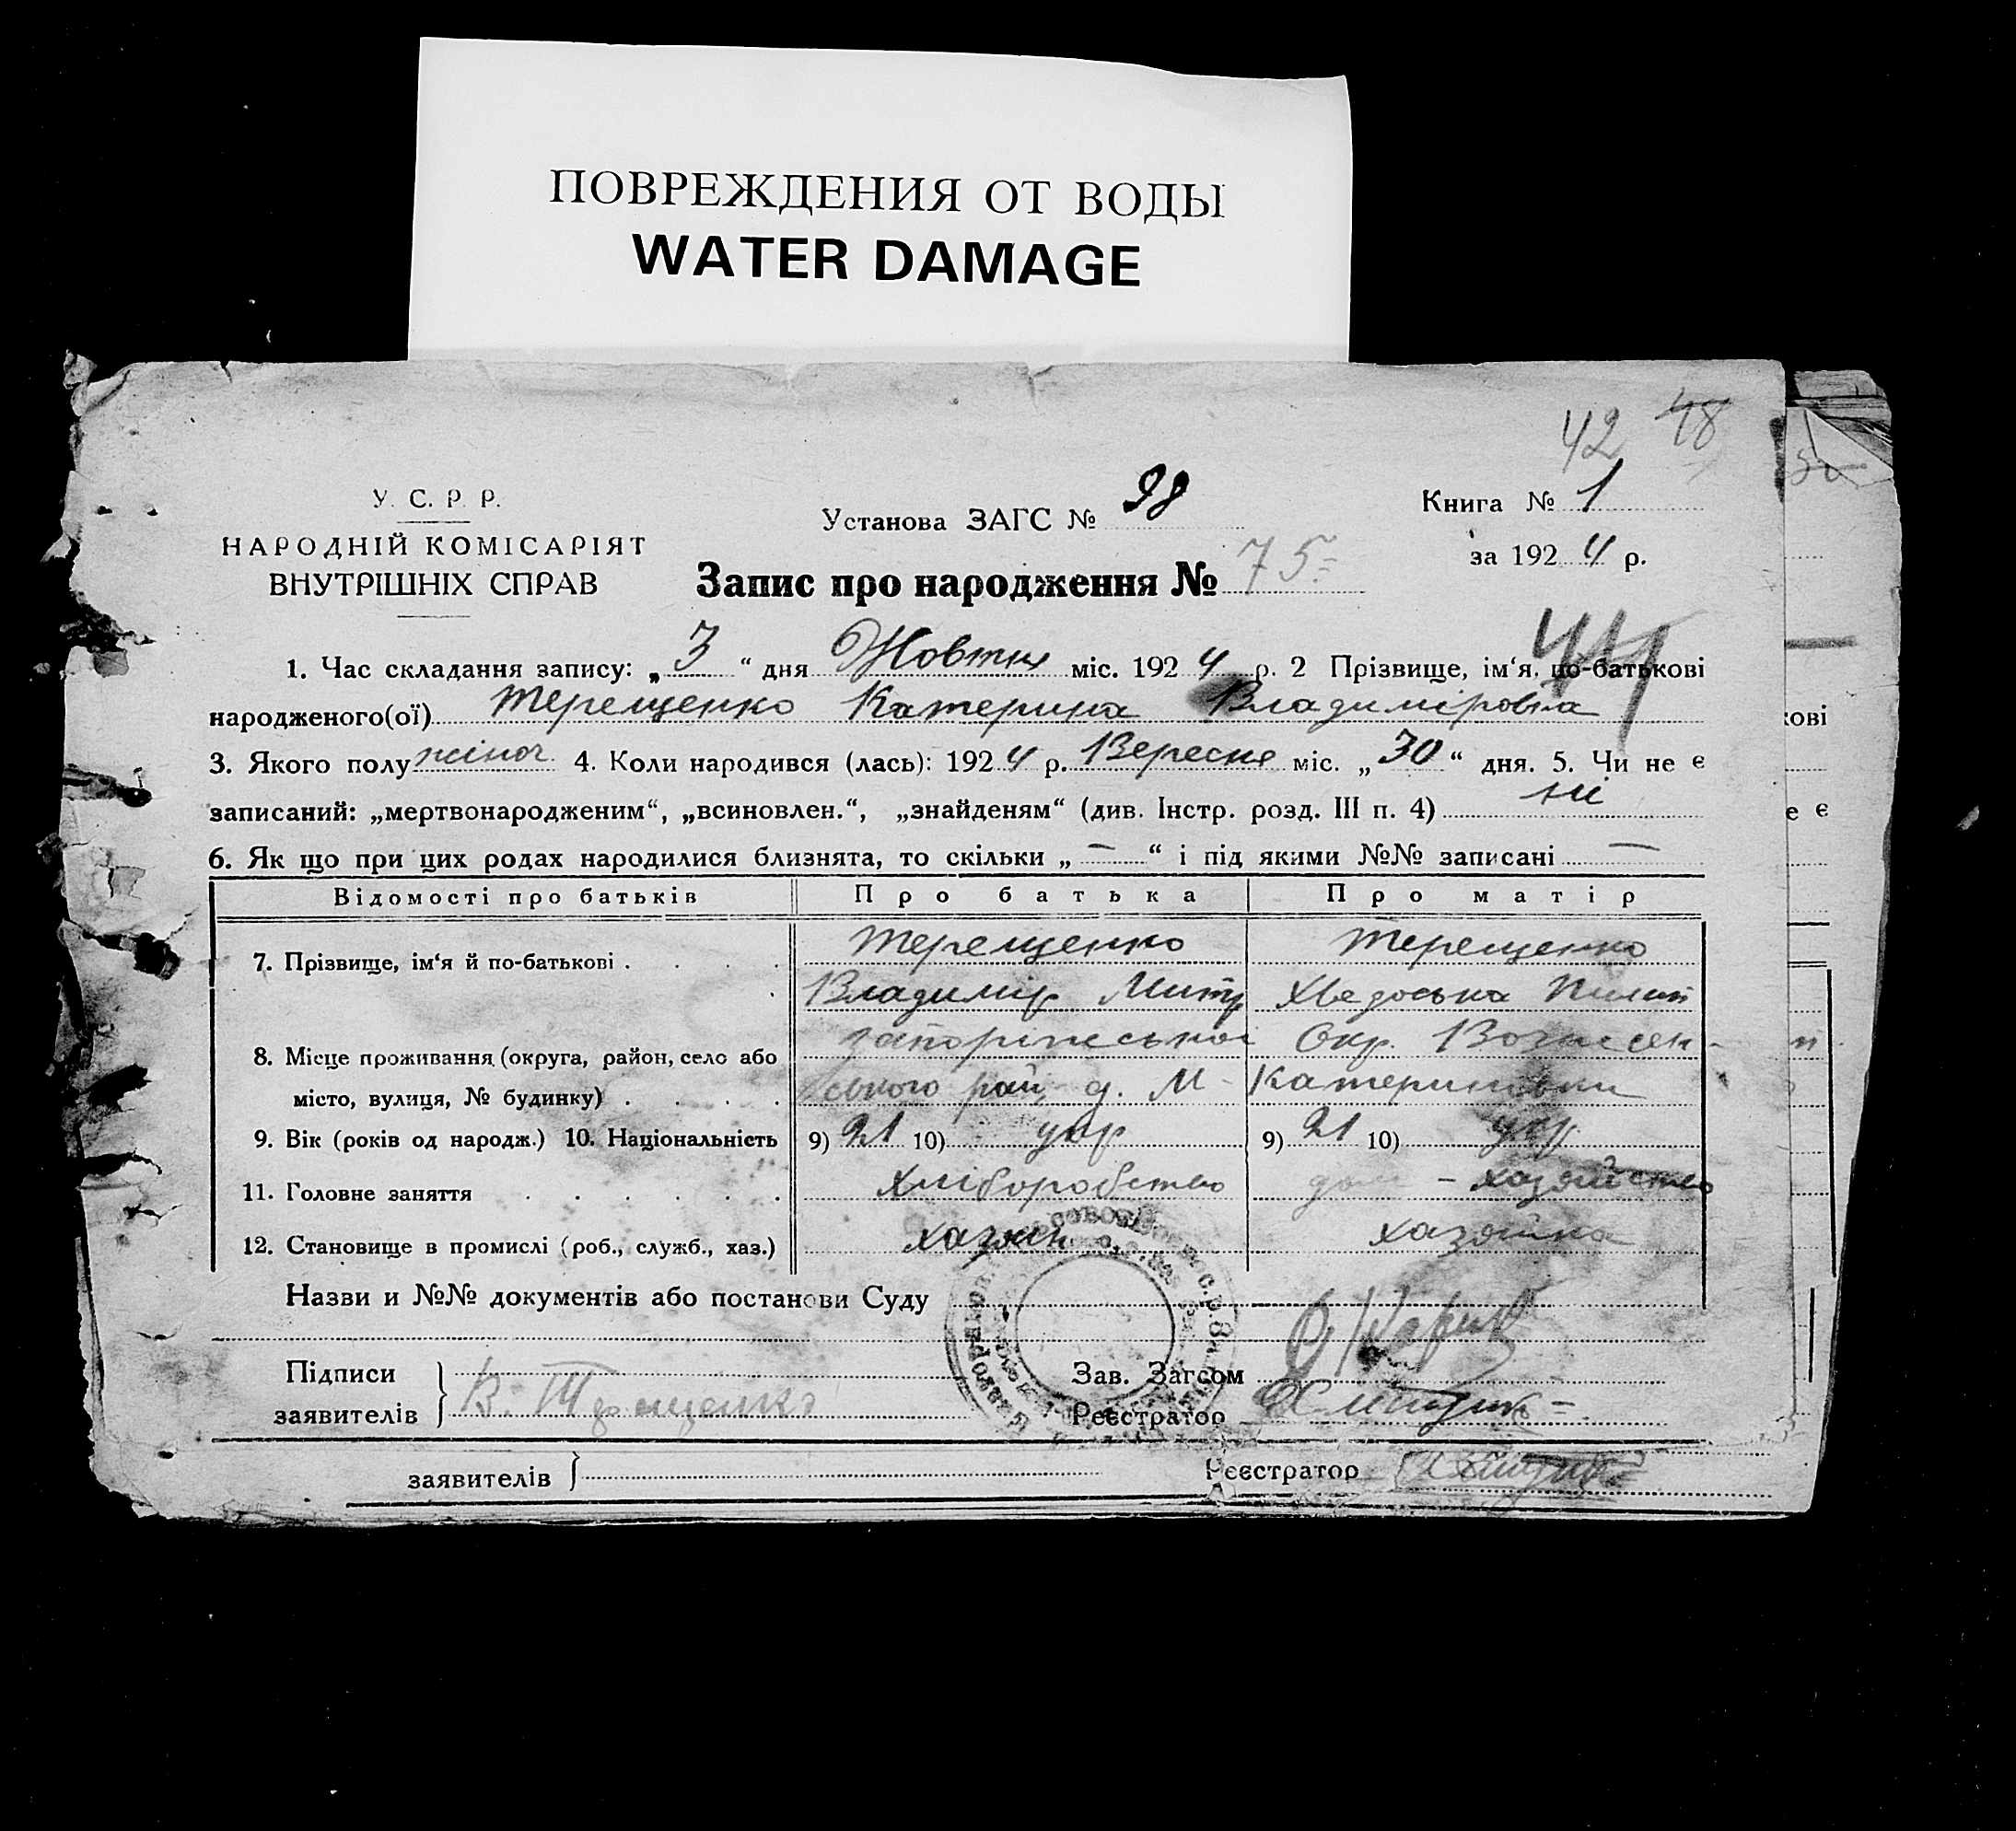 ПОВРЕЖДЕНИЯ ОТ ВОДЫ
WATER DAMAGE
42 48
У. С. Р. Р.
НАРОДНІЙ КОМІСАРІЯТ
ВНУТРІШНІХ СПРАВ
Установа ЗАГС № 98
Книга № 1
за 1924 р.
Запис про народження № 75
1. Час складання запису: „3“ дня Жовтня міс. 1924 р. 2 Прізвище, ім‘я, по-батькові
народженого(ої) Терещенко Катерина Владиміровна
3. Якого полу жіноч. 4. Коли народився (лась): 1924 р. Вересня міс. „30“ дня. 5. Чи не є
записаний: „мертвонародженим“, „всиновлен.“, „знайденям“ (див. Інстр. розд. III п. 4) ні
6. Як що при цих родах народилися близнята, то скільки „—“ і під якими №№ записані —
Відомості про батьків Про батька Про матір
7. Прізвище, ім‘я й по-батькові Терещенко Терещенко
Владимір Митр Хведоська Пилип
8. Місце проживання (округа, район, село або Запоріжської Окр. Вознесен-
місто, вулиця, № будинку) ського рай. д. М-Катериновки
9. Вік (років од народж.) 10. Національність 9) 21 10) укр 9) 21 10) укр
11. Головне заняття Хліборобство дом-хазяйство
12. Становище в промислі (роб., служб., хаз.) хазяїн хазяйка
Назви и №№ документів або постанови Суду
Підписи
заявителів В. Терещенко
Зав. Загсом
Реєстратор
заявителів Реєстратор
кові
е є